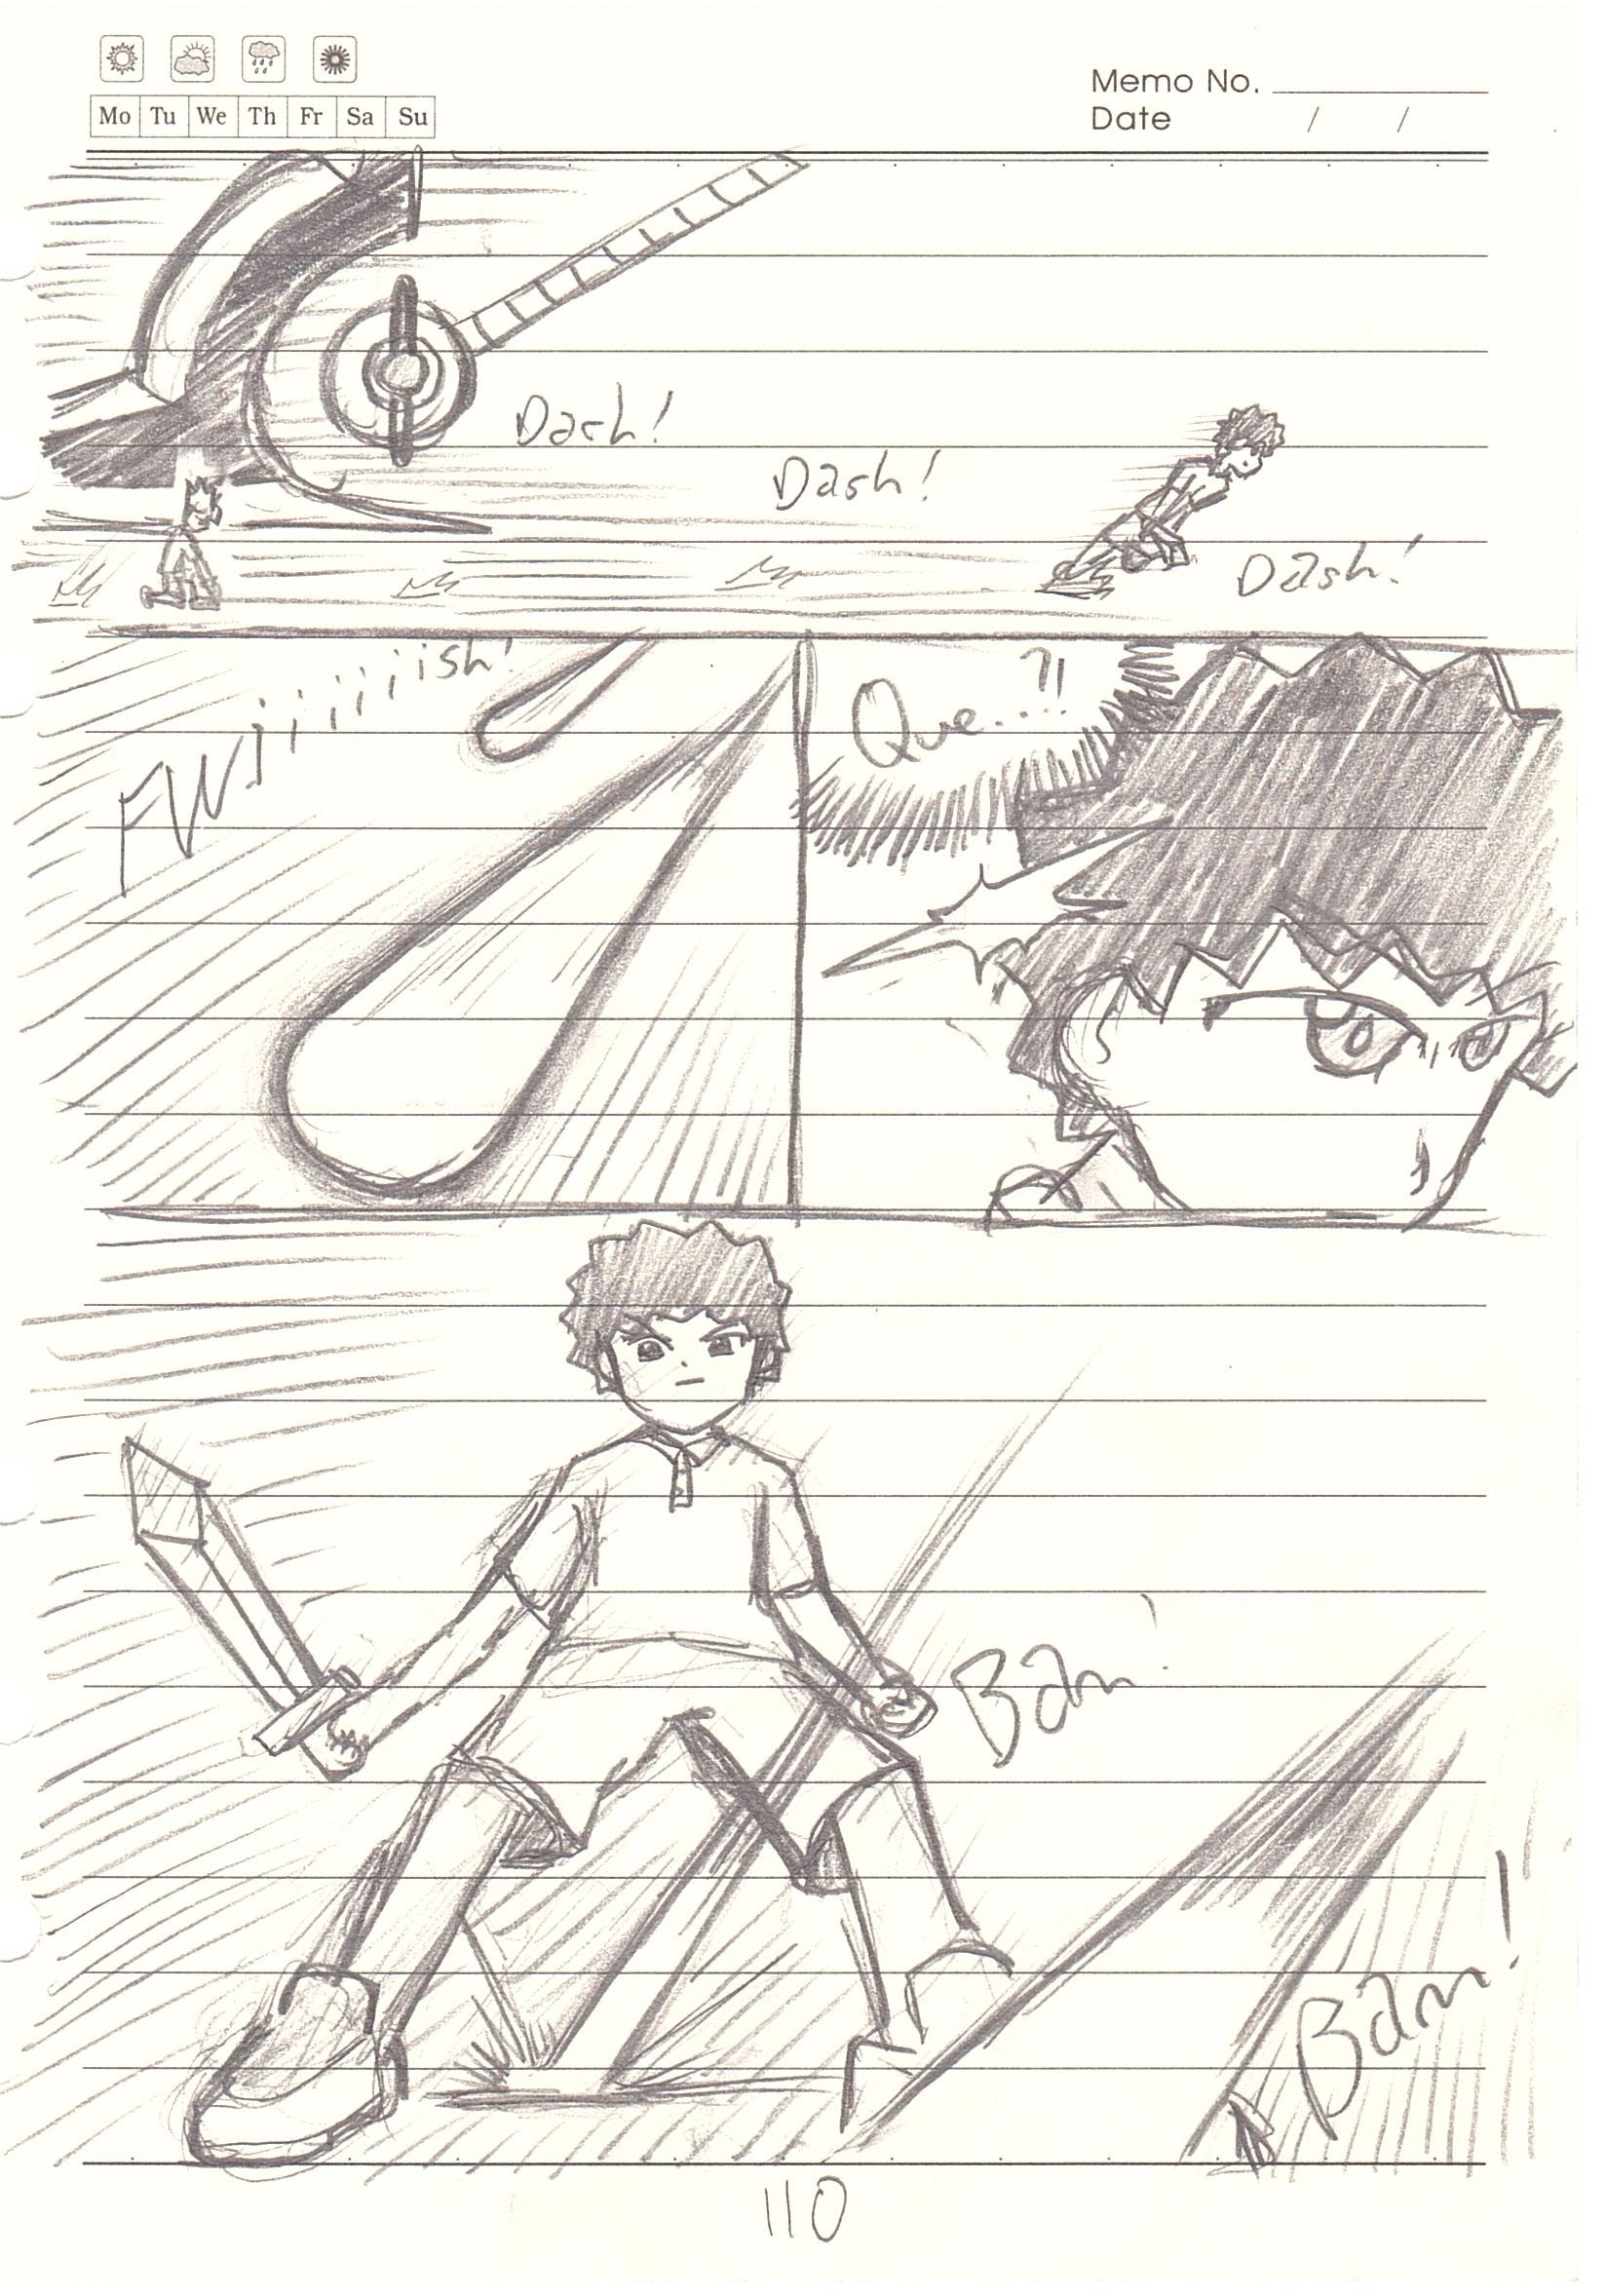 Mo Tu We Th Fr Sa Su
Memo No.
Date / /
Dash!
Dash!
Dash!
FWjiiiiiish!
Que...?!
Bam!
Bam!
110